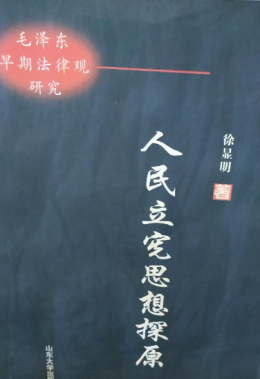 毛泽东
早期法律观
研究
徐显明
著
人民立宪思想探原
山东大学出